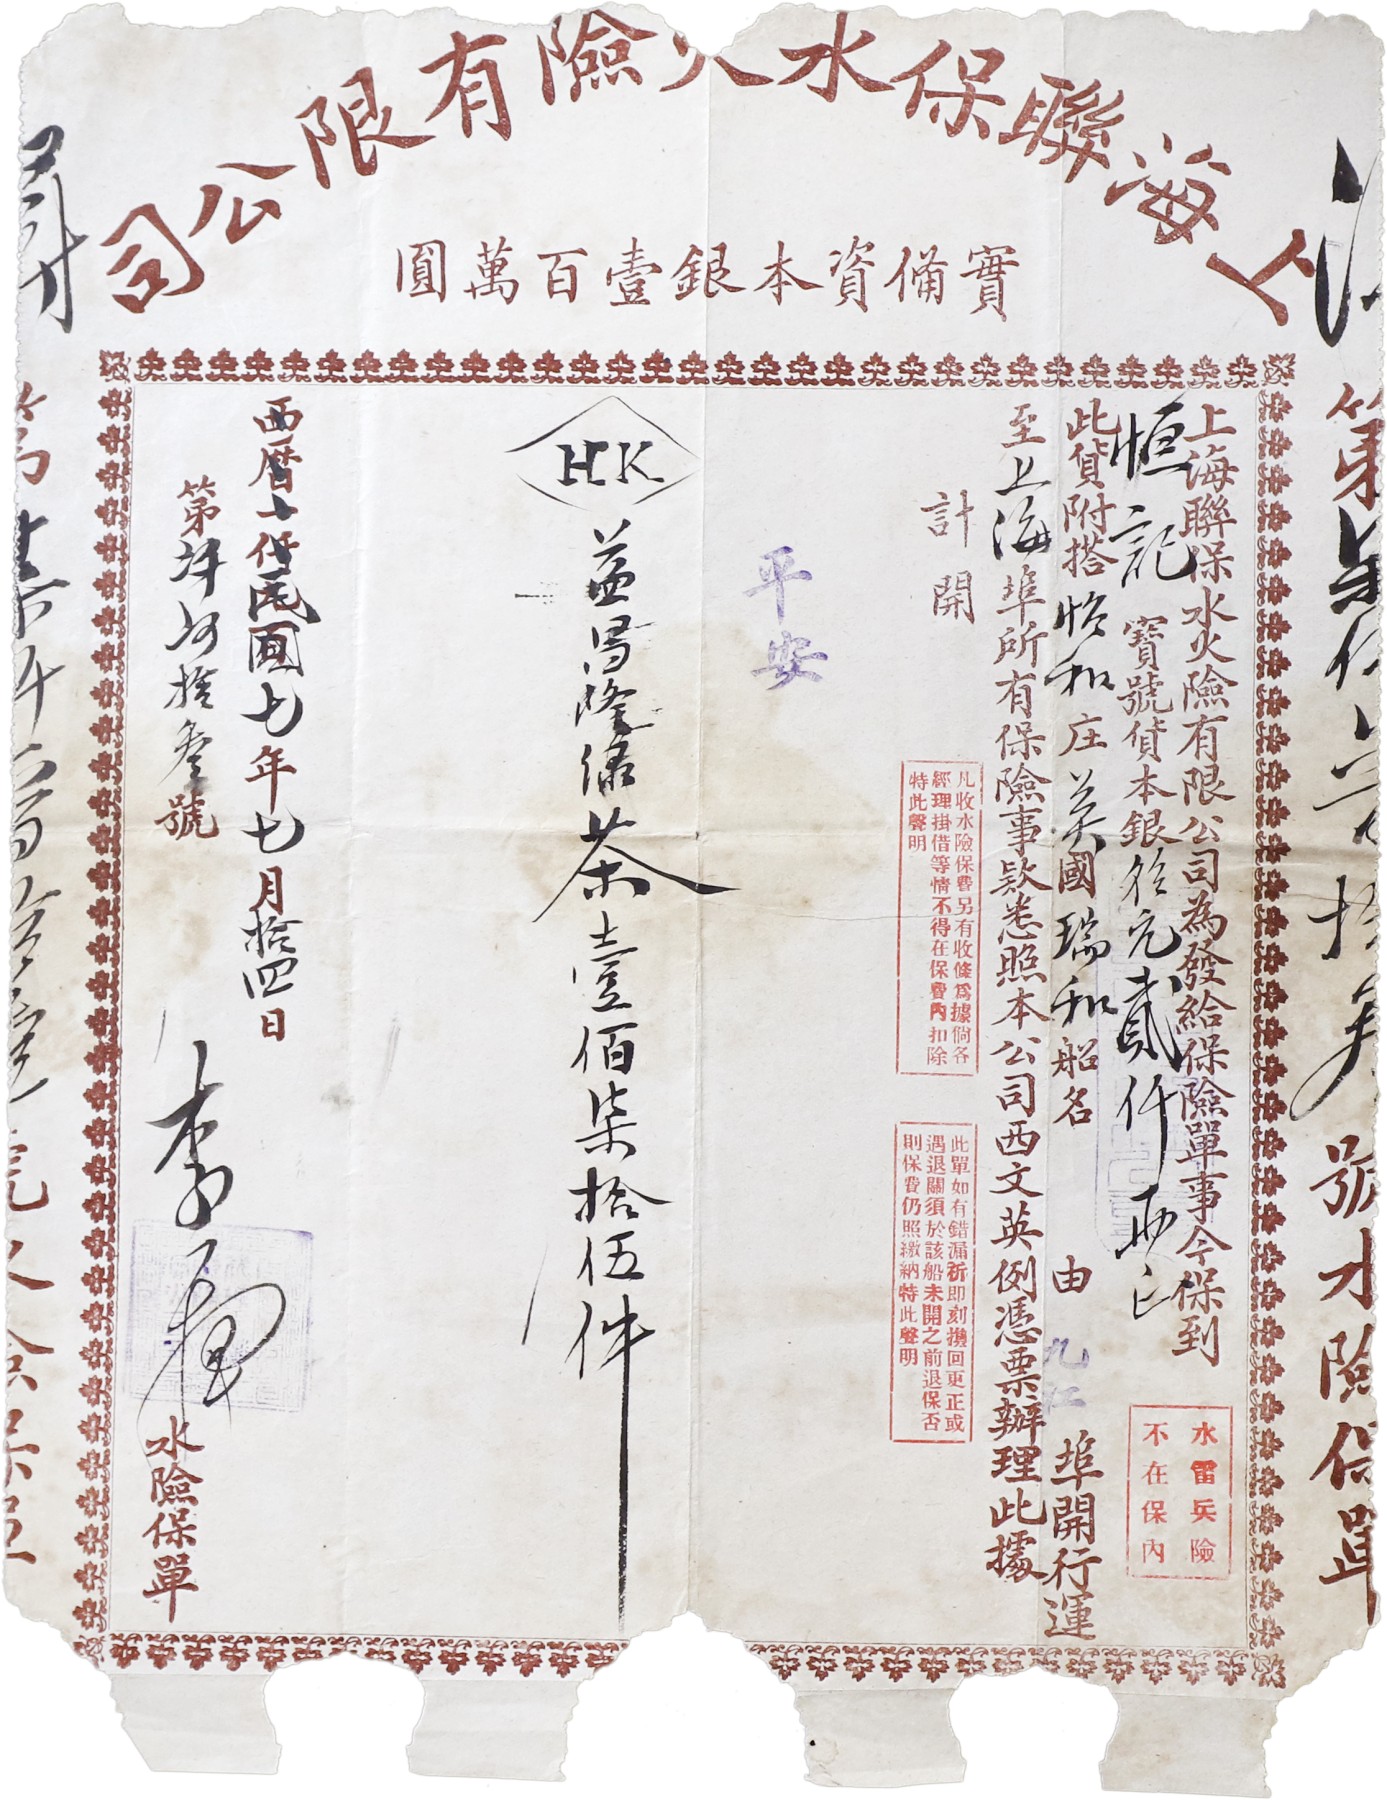 上海聯保水火險有限公司
實備資本銀壹百萬圓
號水險保單
上海聯保水火險有限公司為發給保險單事今保到
恒記寶號貨本銀　元貳仟兩正
此貨附搭怡和庄英國瑞和船名　由九江埠開行運
至上海埠所有保險事欵悉照本公司西文英例憑票辦理此據
水雷兵險
不在保內
計開
凡收水險保費另有收條為據倘各
經理掛借等情不得在保費內扣除
特此聲明
此單如有錯漏祈即刻換回更正或
遇退關須於該船未開之前退保否
則保費仍照繳納特此聲明
平安
HK
益昌隆　茶壹佰柒拾伍件
西曆　民國七年七月拾四日
第　拾叁號
水險保單